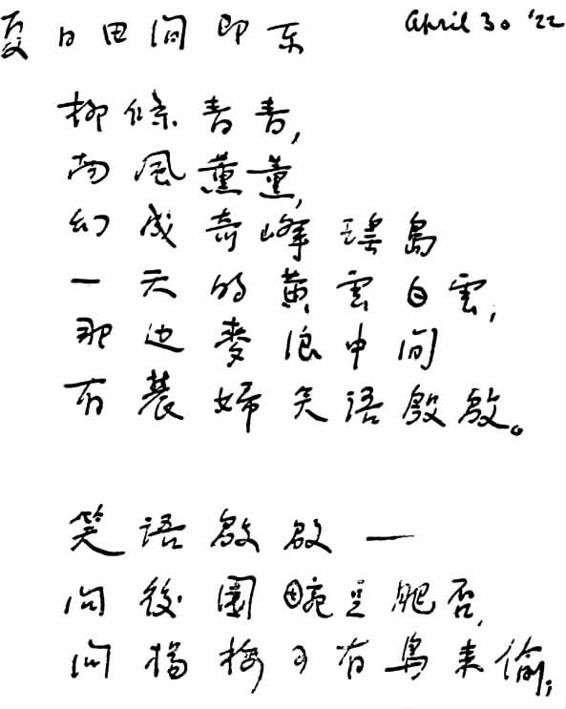 夏日田间即景 April 30 '22
柳條青青,
南風薰薰,
幻成奇峰瑤島
一天的黃雲白雲,
那边麥浪中间
有農婦笑语殷殷。
笑語殷殷—
问後園豌豆肥否,
问楊梅可有鳥来偷;